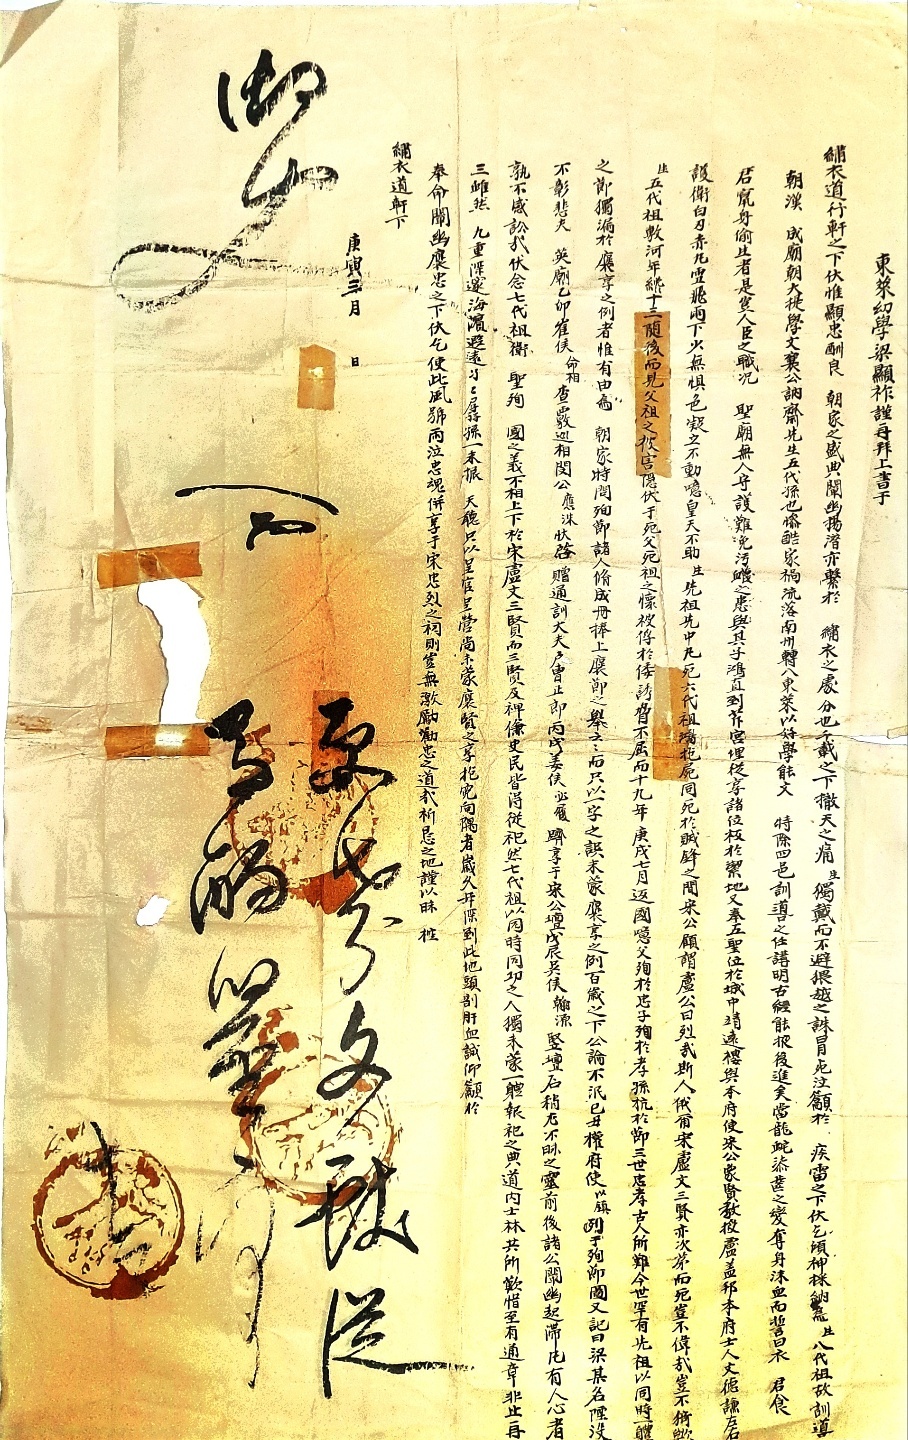 東萊幼學梁顯祚謹再拜上書于
繡衣道行軒之下伏惟顯忠酬良 朝家之盛典闡幽揚潛亦繫於 繡衣之處分也千載之下撤天之痛生獨戴而不避猥越之誅冒死泣籲於 疾雷之下伏乞頃神採納焉生八代祖故訓導
朝漢 成廟朝大提學文襄公訥齋先生五代孫也慘酷家禍流落南州轉入東萊以好學能文 特除四邑訓導之任講明古經能振後進矣當龍蛇添齒之變奪身沫血而誓曰衣 君食
君竄身偷生者是豈人臣之職況 聖廟無人守護難免污衊之患與其子鴻直到芹宮埋從享諸位板於潔地又奉五聖位於城中靖遠樓與本府使宋公象賢教授盧盖邦本府士人文德謙左右
護衛白刃赤丸雲飛雨下少無惧色凝立不動噫皇天不助生先祖先中丸死六代祖鴻抱屍同死於賊鋒之間宋公顧謂盧公曰烈哉斯人俄爾宋盧文三賢亦次第而死豈不偉哉豈不
生五代祖敷河年纔十三隨後而見父祖之被害隱伏于死父死祖之懷被俘於倭誘脅不屈而十九年庚戌七月返國噫父殉於忠子殉於孝孫抗於節三世忠孝古人所難今世罕有先祖以同時一體
之節獨漏於褒享之例者惟有由焉 朝家時問殉節諸人脩成冊捧上褒節之擧之而只以一字之誤未蒙褒享之例百歲之下公論不泯己丑權府使以鎭列于殉節圖又記曰梁某名陞沒
不彰悲夫 英廟乙卯崔侯命相查覈巡相閔公應洙狀啓贈通訓大夫戶曹正郎丙戌姜侯必履躋享于宋公壇戊辰吳侯翰源竪壇石稍尤不昧之靈前後諸公闡幽起滯凡有人心者
孰不感訟哉伏念七代祖衛 聖殉 國之義不相上下於宋盧文三賢而三賢及裨傔吏民皆得從祀然七代祖以同時同功之人獨未蒙一體報祀之典道內士林共所歎惜至有通章非止再
三雖然 九重深邃海濱遐遠孱孫一未振 天聽只以呈官呈營尚未蒙褒賢之享抱寃向隅者歲久年深到此地頭剖肝血誠仰籲於
奉命闡幽褒忠之下伏乞使此風號雨泣忠魂併享于宋忠烈之祠則豈無激勵勸忠之道哉祈懇之地謹以昧 控
繡衣道軒下
庚寅三月 日
御史
更考文蹟從